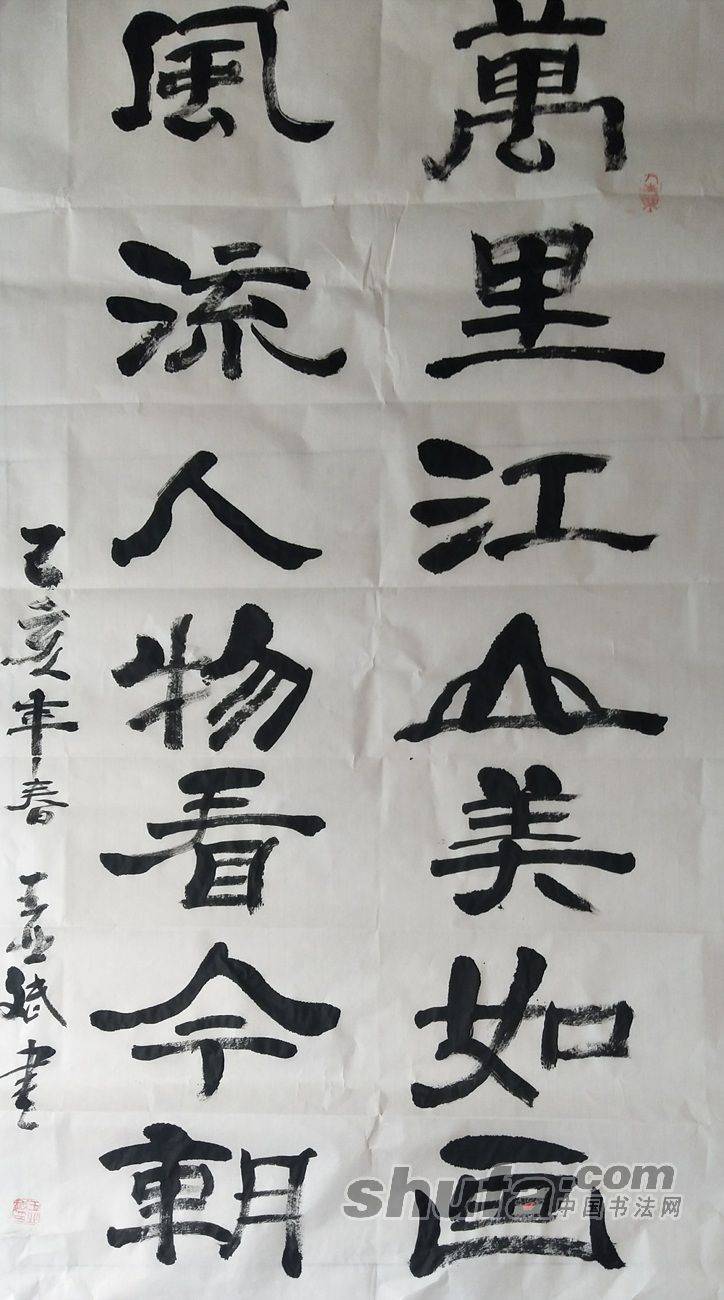 萬里江山美如画
風流人物看今朝
己亥年春 王亚斌書
shufa.com
中国书法网